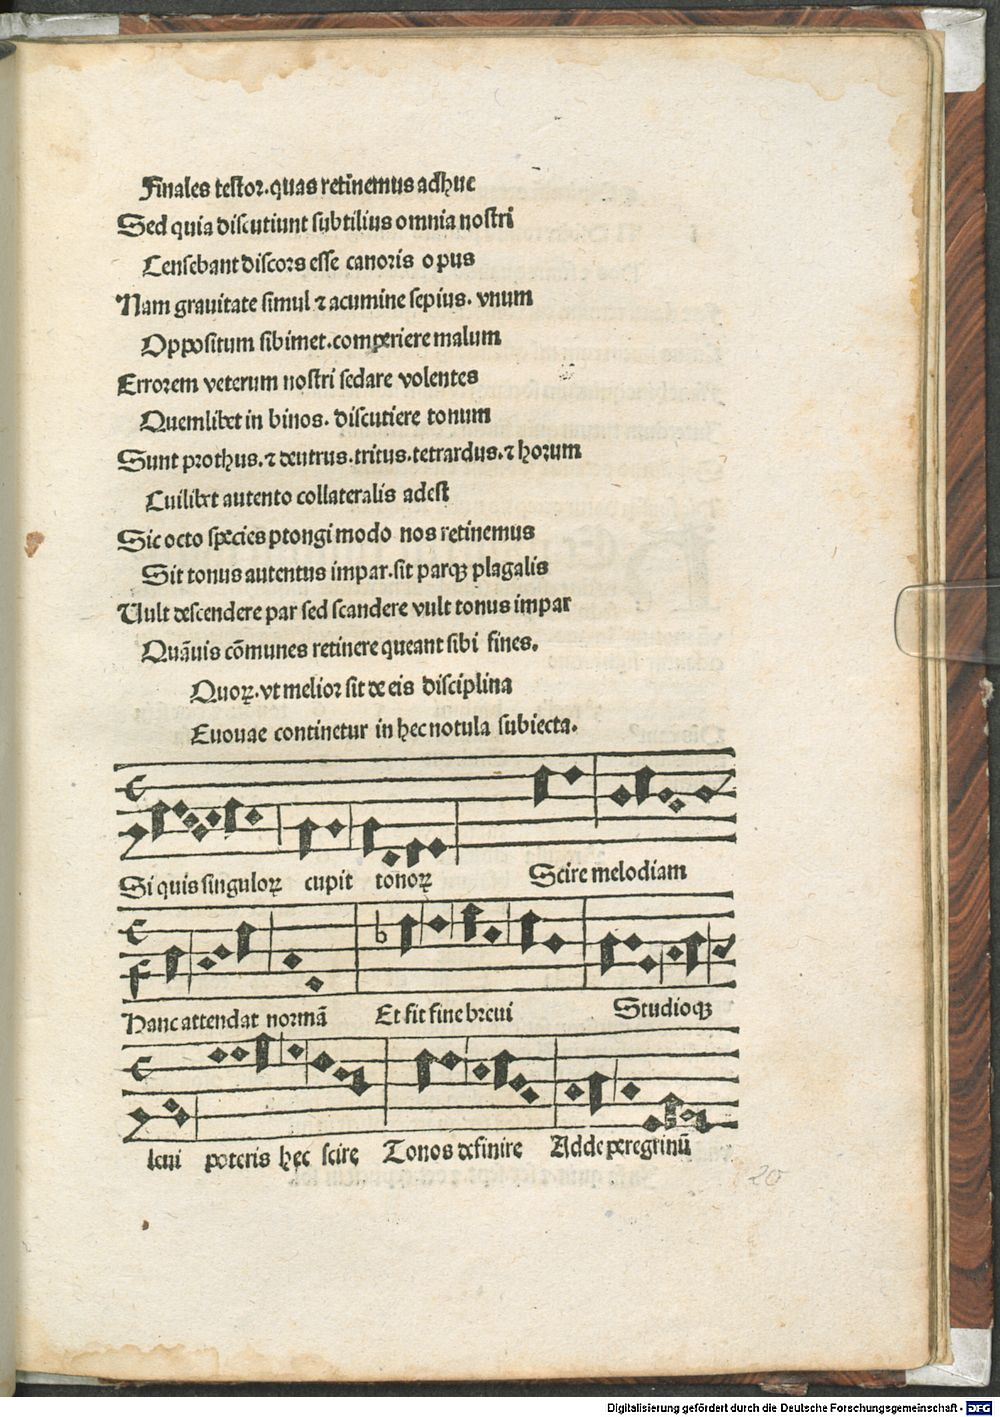 Finales testor.quas retinemus adhuc
Sed quia discutiunt subtilius omnia nostri
Censebant discors esse canoris opus
Nam grauitate simul ⁊ acumine sepius. vnum
Oppositum sibimet.comperiere malum
Errorem veterum nostri sedare volentes
Quemlibet in binos. discutiere tonum
Sunt prothus.⁊ deutrus.tritus.tetrardus.⁊ horum
Cuilibet autento collateralis adest
Sic octo species ptongi modo nos retinemus
Sit tonus autentus impar.sit parqꝫ plagalis
Vult descendere par sed scandere vult tonus impar
Quãuis cõmunes retinere queant sibi fines.
Quoꝝ.vt melior sit de eis disciplina
Euouae continetur in hec notula subiecta.
Si quis singuloꝝ cupit tonoꝝ Scire melodiam
Hanc attendat normã Et fit fine breui Studioqꝫ
leui poteris hęc scirę Tonos definire Adde peregrinũ
20
Digitalisierung gefördert durch die Deutsche Forschungsgemeinschaft - DFG